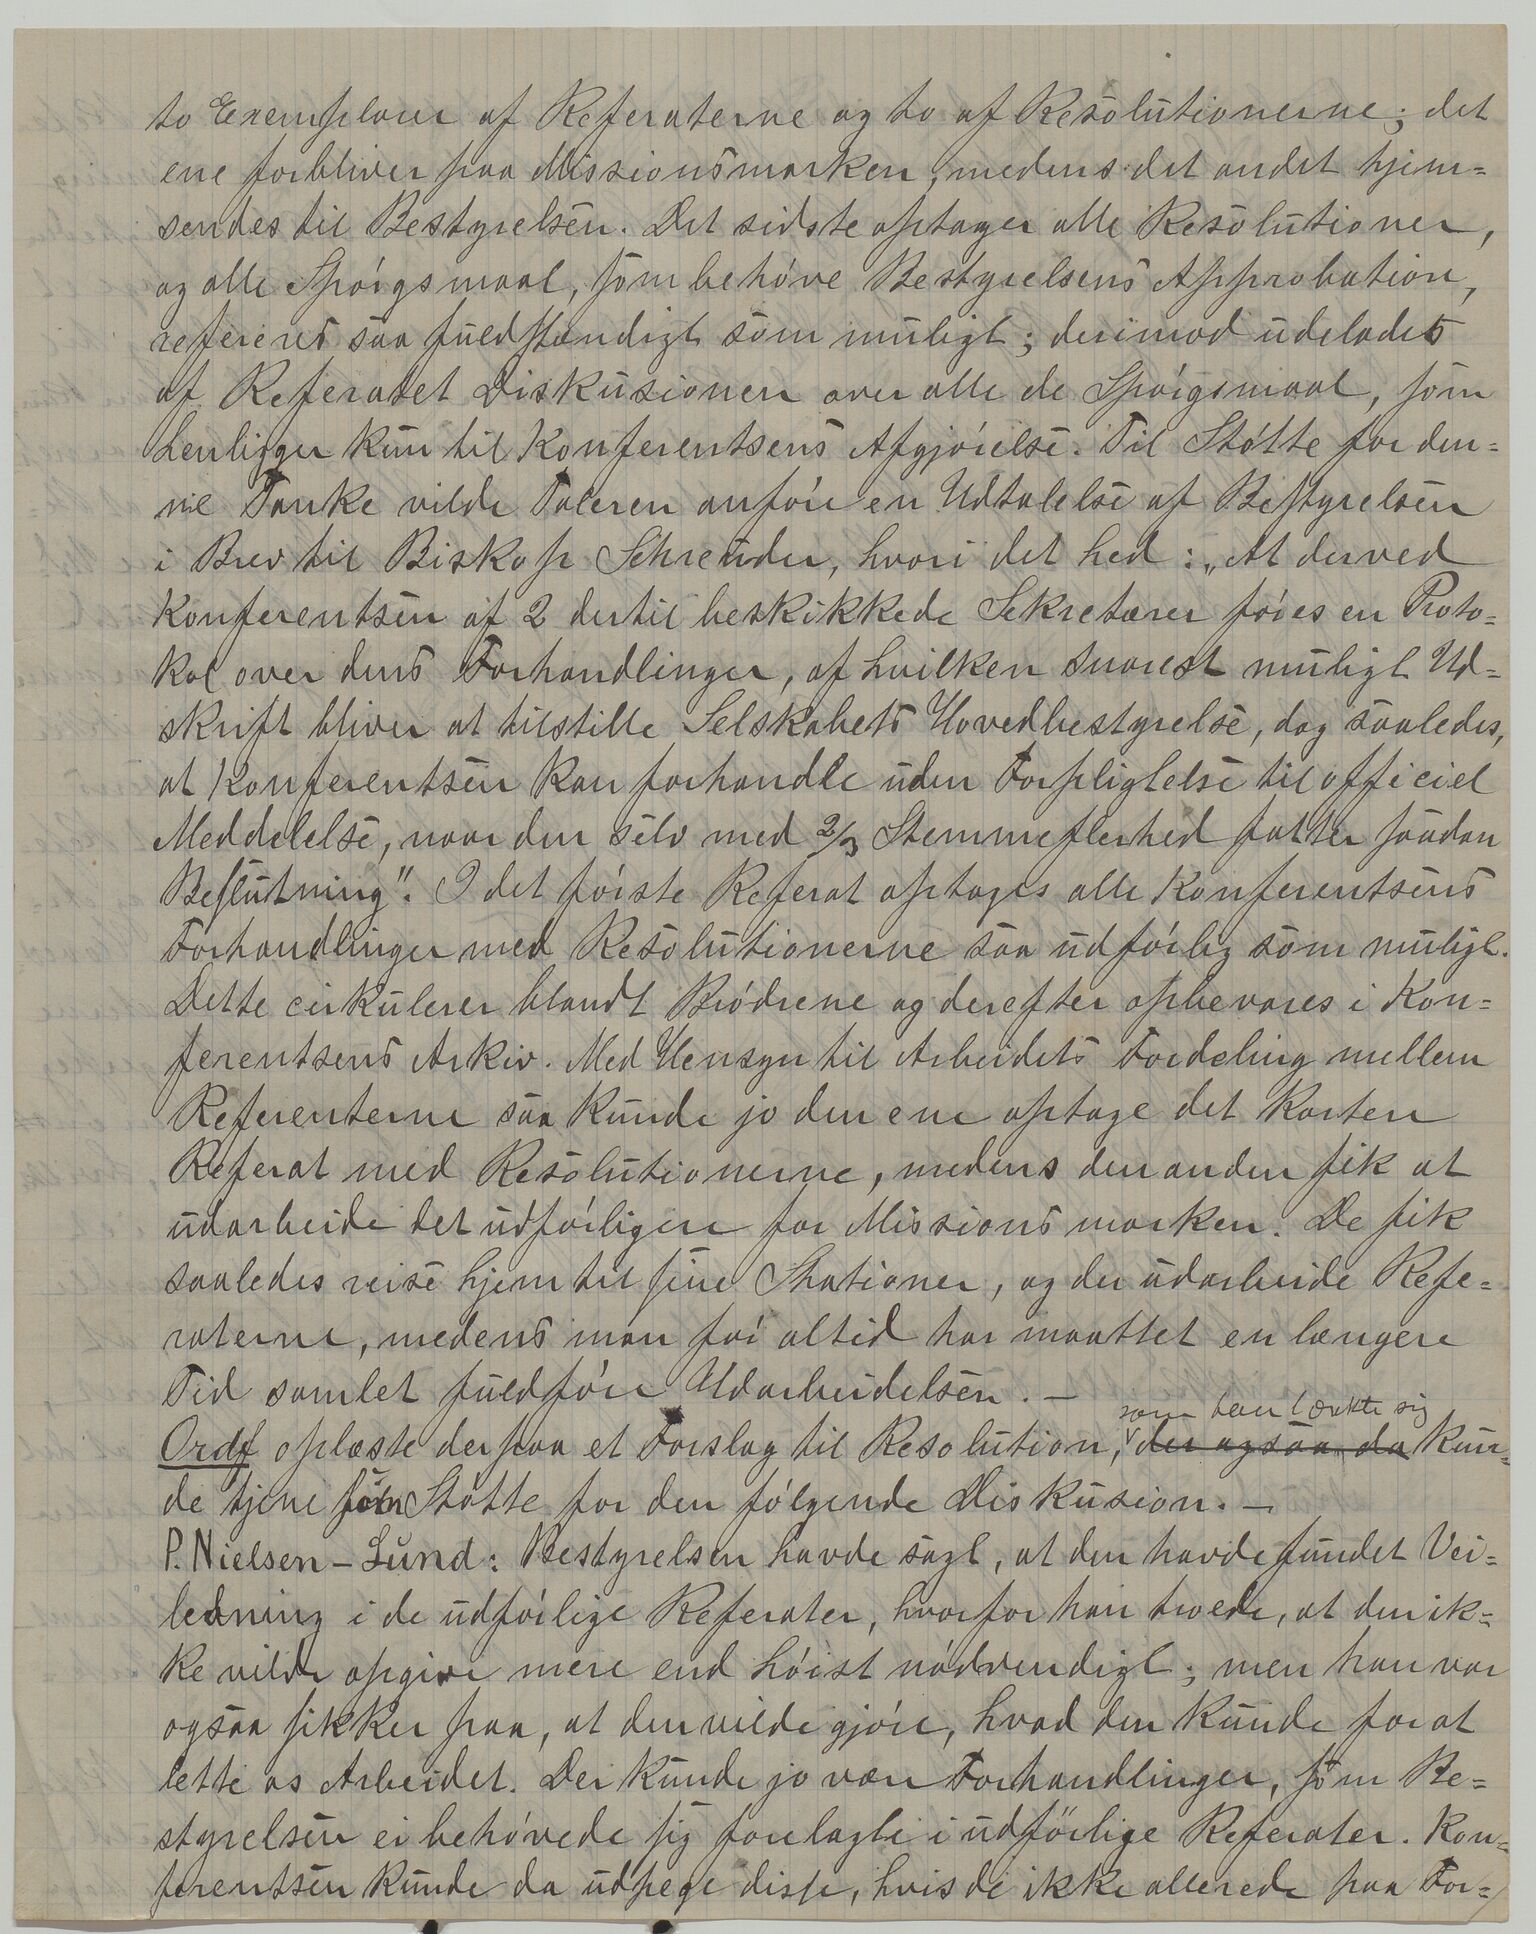 to Exemplarer af Referaterne og to af Resolutionerne; det
ene forbliver paa Missionsmarken, medens det andet hjem=
sendes til Bestyrelsen. Det sidste optager alle Resolutioner,
og alle Spörgsmaal, som behöve Bestyrelsens Approbation,
refereres saa fuldstændigt som muligt; derimod udelades
af Referatet Diskusionen over alle de Spörgsmaal, som
henligger kun til Konferentsens Afgjörelse. Til Stötte for den=
ne Tanke vilde Taleren anföre en Udtalelse af Bestyrelsen
i Brev til Biskop Schreuder, hvori det hed: „At derved
Konferentsen af 2 dertil beskikkede Sekretærer föres en Proto=
kol over dens Forhandlinger, af hvilken snarest muligt Ud=
skrift bliver at tilstille Selskabets Hovedbestyrelse, dog saaledes,
at Konferentsen kan forhandle uden Forpligtelse til officiel
Meddelelse, naar den selv med 2/3 Stemmeflerhed fatter saadan
Beslutning". I det förste Referat optages alle Konferentsens
Forhandlinger med Resolutionerne saa udförlig som muligt.
Dette cirkulerer blandt Brödrene og derefter opbevares i Kon=
ferentsens Arkiv. Med Hensyn til Arbeidets Fordeling mellem
Referenterne saa kunde jo den ene optage det korten
Referat med Resolutionerne, medens den anden fik at
udarbeide det udförligere for Missionsmarken. De fik
saaledes reise hjem til sine Stationer, og der udarbeide Refe=
raterne, medens man för altid har maattet en længere
Tid samlet fuldföre Udarbeidelsen. —
som han tænkte sig
Ordf oplæste derpaa et Forslag til Resolution, der ogsaa da kun=
de tjene som Stötte for den fölgende Diskusion. —
P. Nielsen-Lund: Bestyrelsen havde sagt, at den havde fundet Vei=
ledning i de udförlige Referater, hvorfor han troede, at den ik=
ke vilde opgive mere end höist nödvendigt; men han var
ogsaa sikker paa, at den vilde gjöre, hvad den kunde for at
lette os Arbeidet. Der kunde jo være Forhandlinger, som Be=
styrelsen ei behövede sig forelagte i udförlige Referater. Kon=
ferentsen kunde da udpege disse, hvis de ikke allerede paa For=